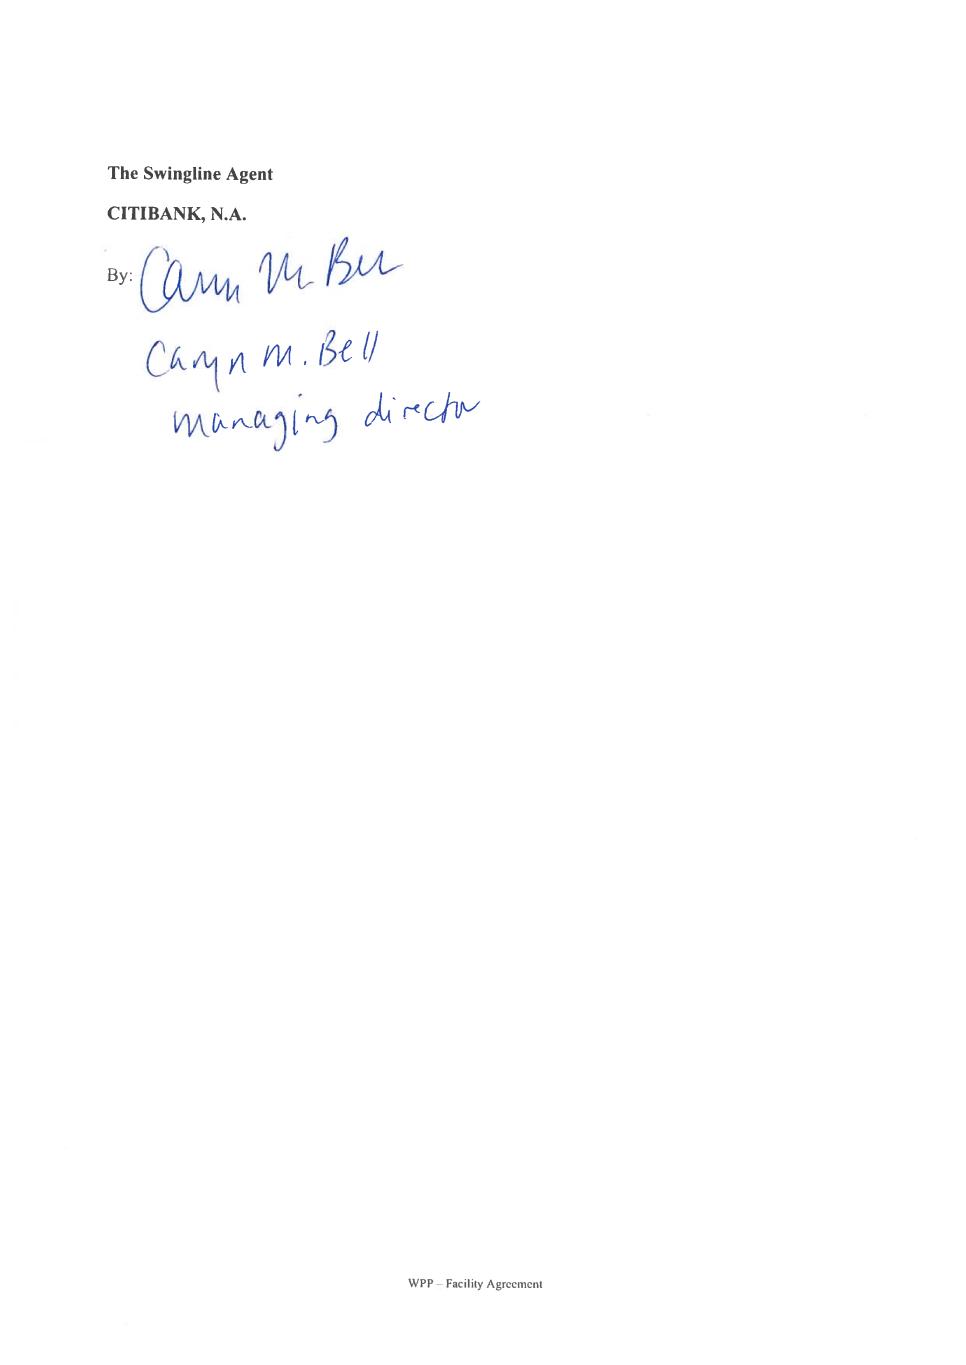 The Swingline Agent
CITIBANK, N.A.
By: Caryn M Bell
Caryn M. Bell
managing director
WPP – Facility Agreement